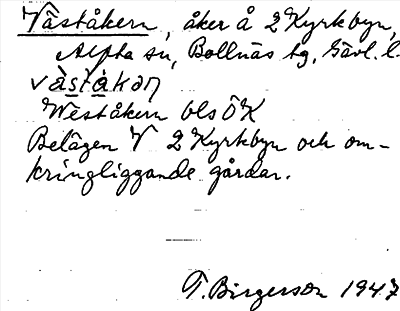 Väståkern, åker å 2 Kyrkbyn,
Alfta sn, Bollnäs tg, Gävl. l.
Weståkern bls ÖK
Belägen V 2 Kyrkbyn och om-
kringliggande gårdar.
T. Birgerson 1947